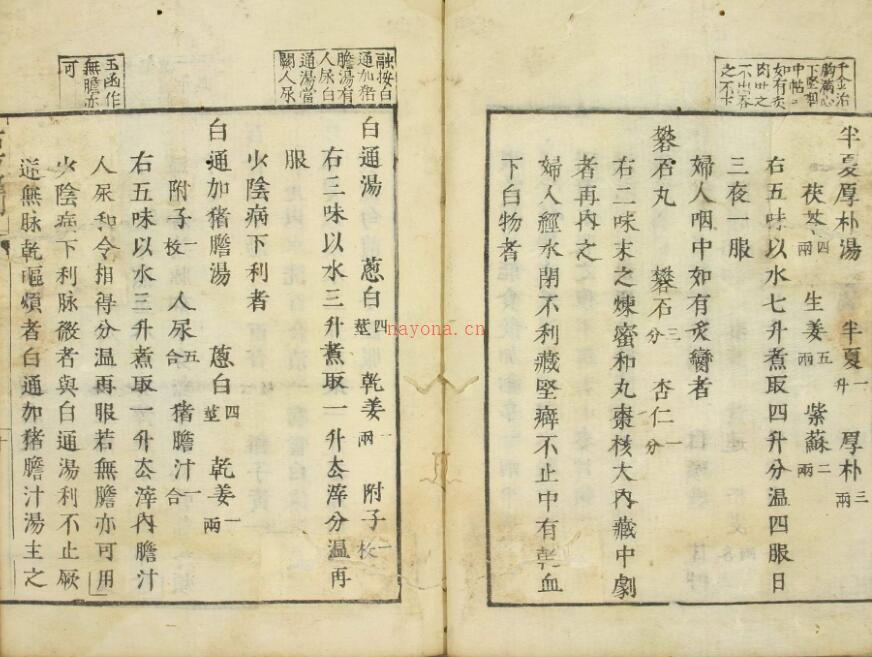 千金治
胸滿心
下堅咽
中帖帖
如有炙
肉吐之
不出吞
之不下
半夏厚朴湯 半夏一升 厚朴三兩
茯苓四兩 生姜五兩 紫蘇二兩
右五味以水七升煮取四升分温四服日
三夜一服
婦人咽中如有炙臠者
礬石丸 礬石三分 杏仁一分
右二味末之煉蜜和丸棗核大内藏中劇
者再内之
婦人經水閉不利藏堅癖不止中有乾血
下白物者
融按白
通加猪
膽湯有
人尿白
通湯當
闕人尿
白通湯 蔥白四莖 乾姜一兩 附子一枚
右三味以水三升煮取一升去滓分温再
服
少陰病下利者
白通加猪膽湯 蔥白四莖 乾姜一兩
附子一枚 人尿五合 猪膽汁一合
右五味以水三升煮取一升去滓内膽汁
人尿和令相得分温再服若無膽亦可用
少陰病下利脉微者與白通湯利不止厥
逆無脉乾嘔煩者白通加猪膽汁湯主之
玉函作
無膽亦
可
nayona.cn